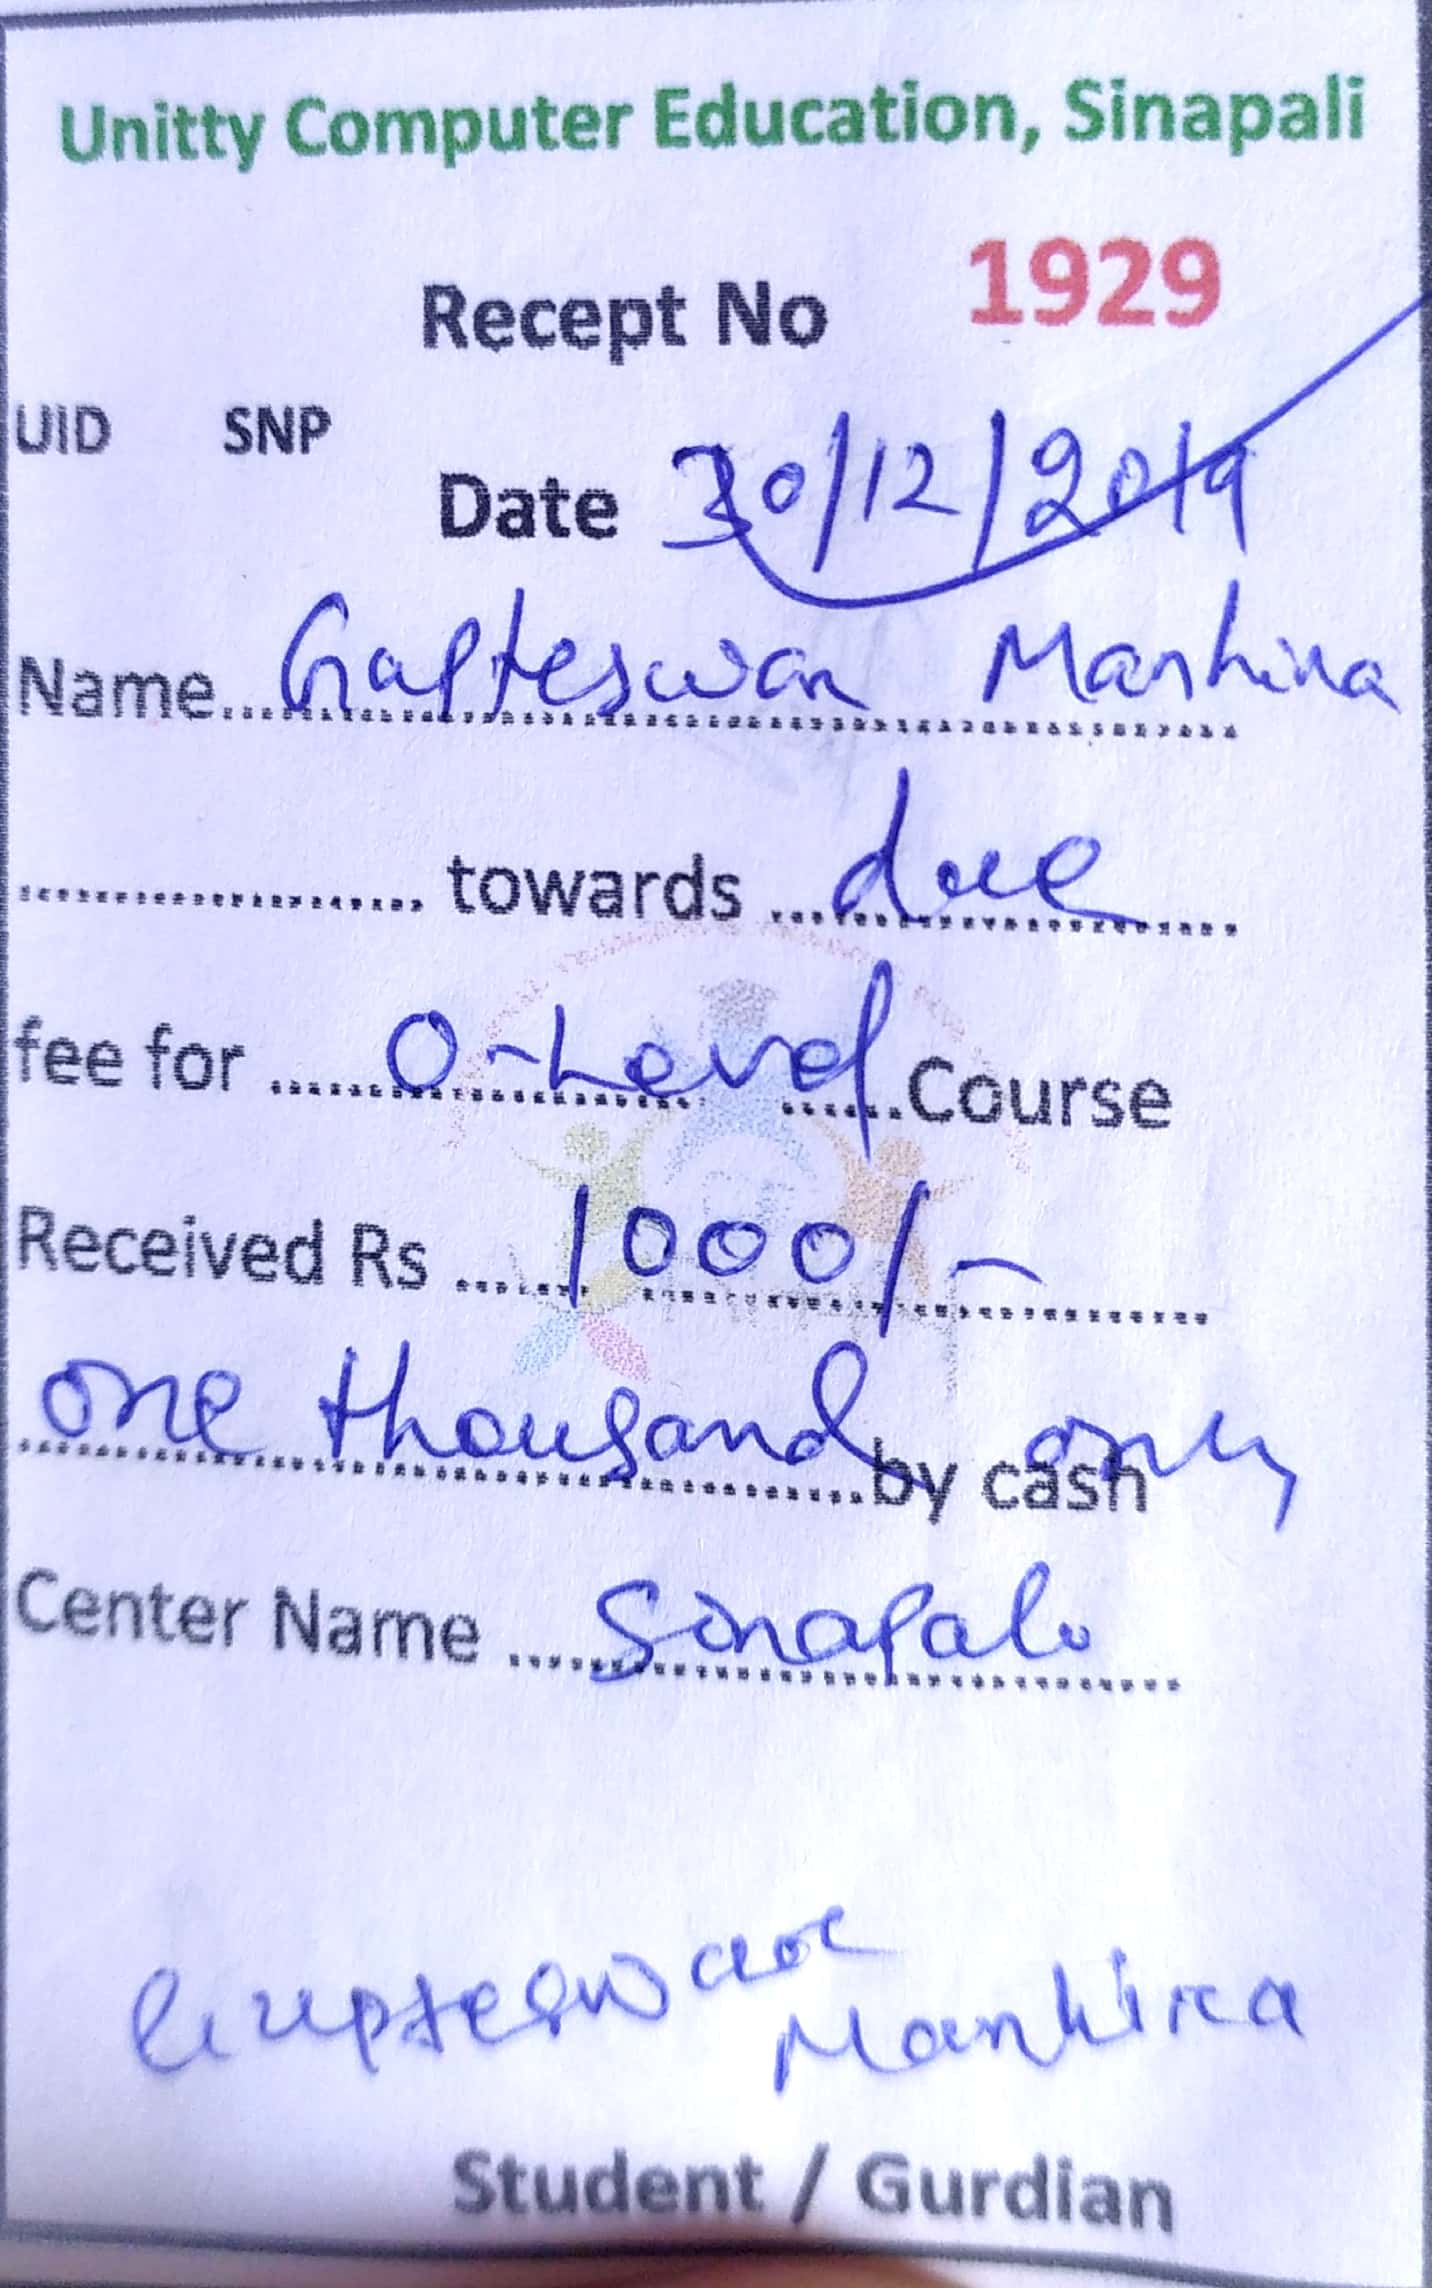 Unitty Computer Education, Sinapali
Recept No 1929
UID SNP
Date 30/12/2019
Name Gupteswar Manhira
towards due
fee for O-Level Course
Received Rs 1000/-
one thousand only by cash
Center Name Sinapali
Gupteswar
Manhira
Student / Gurdian